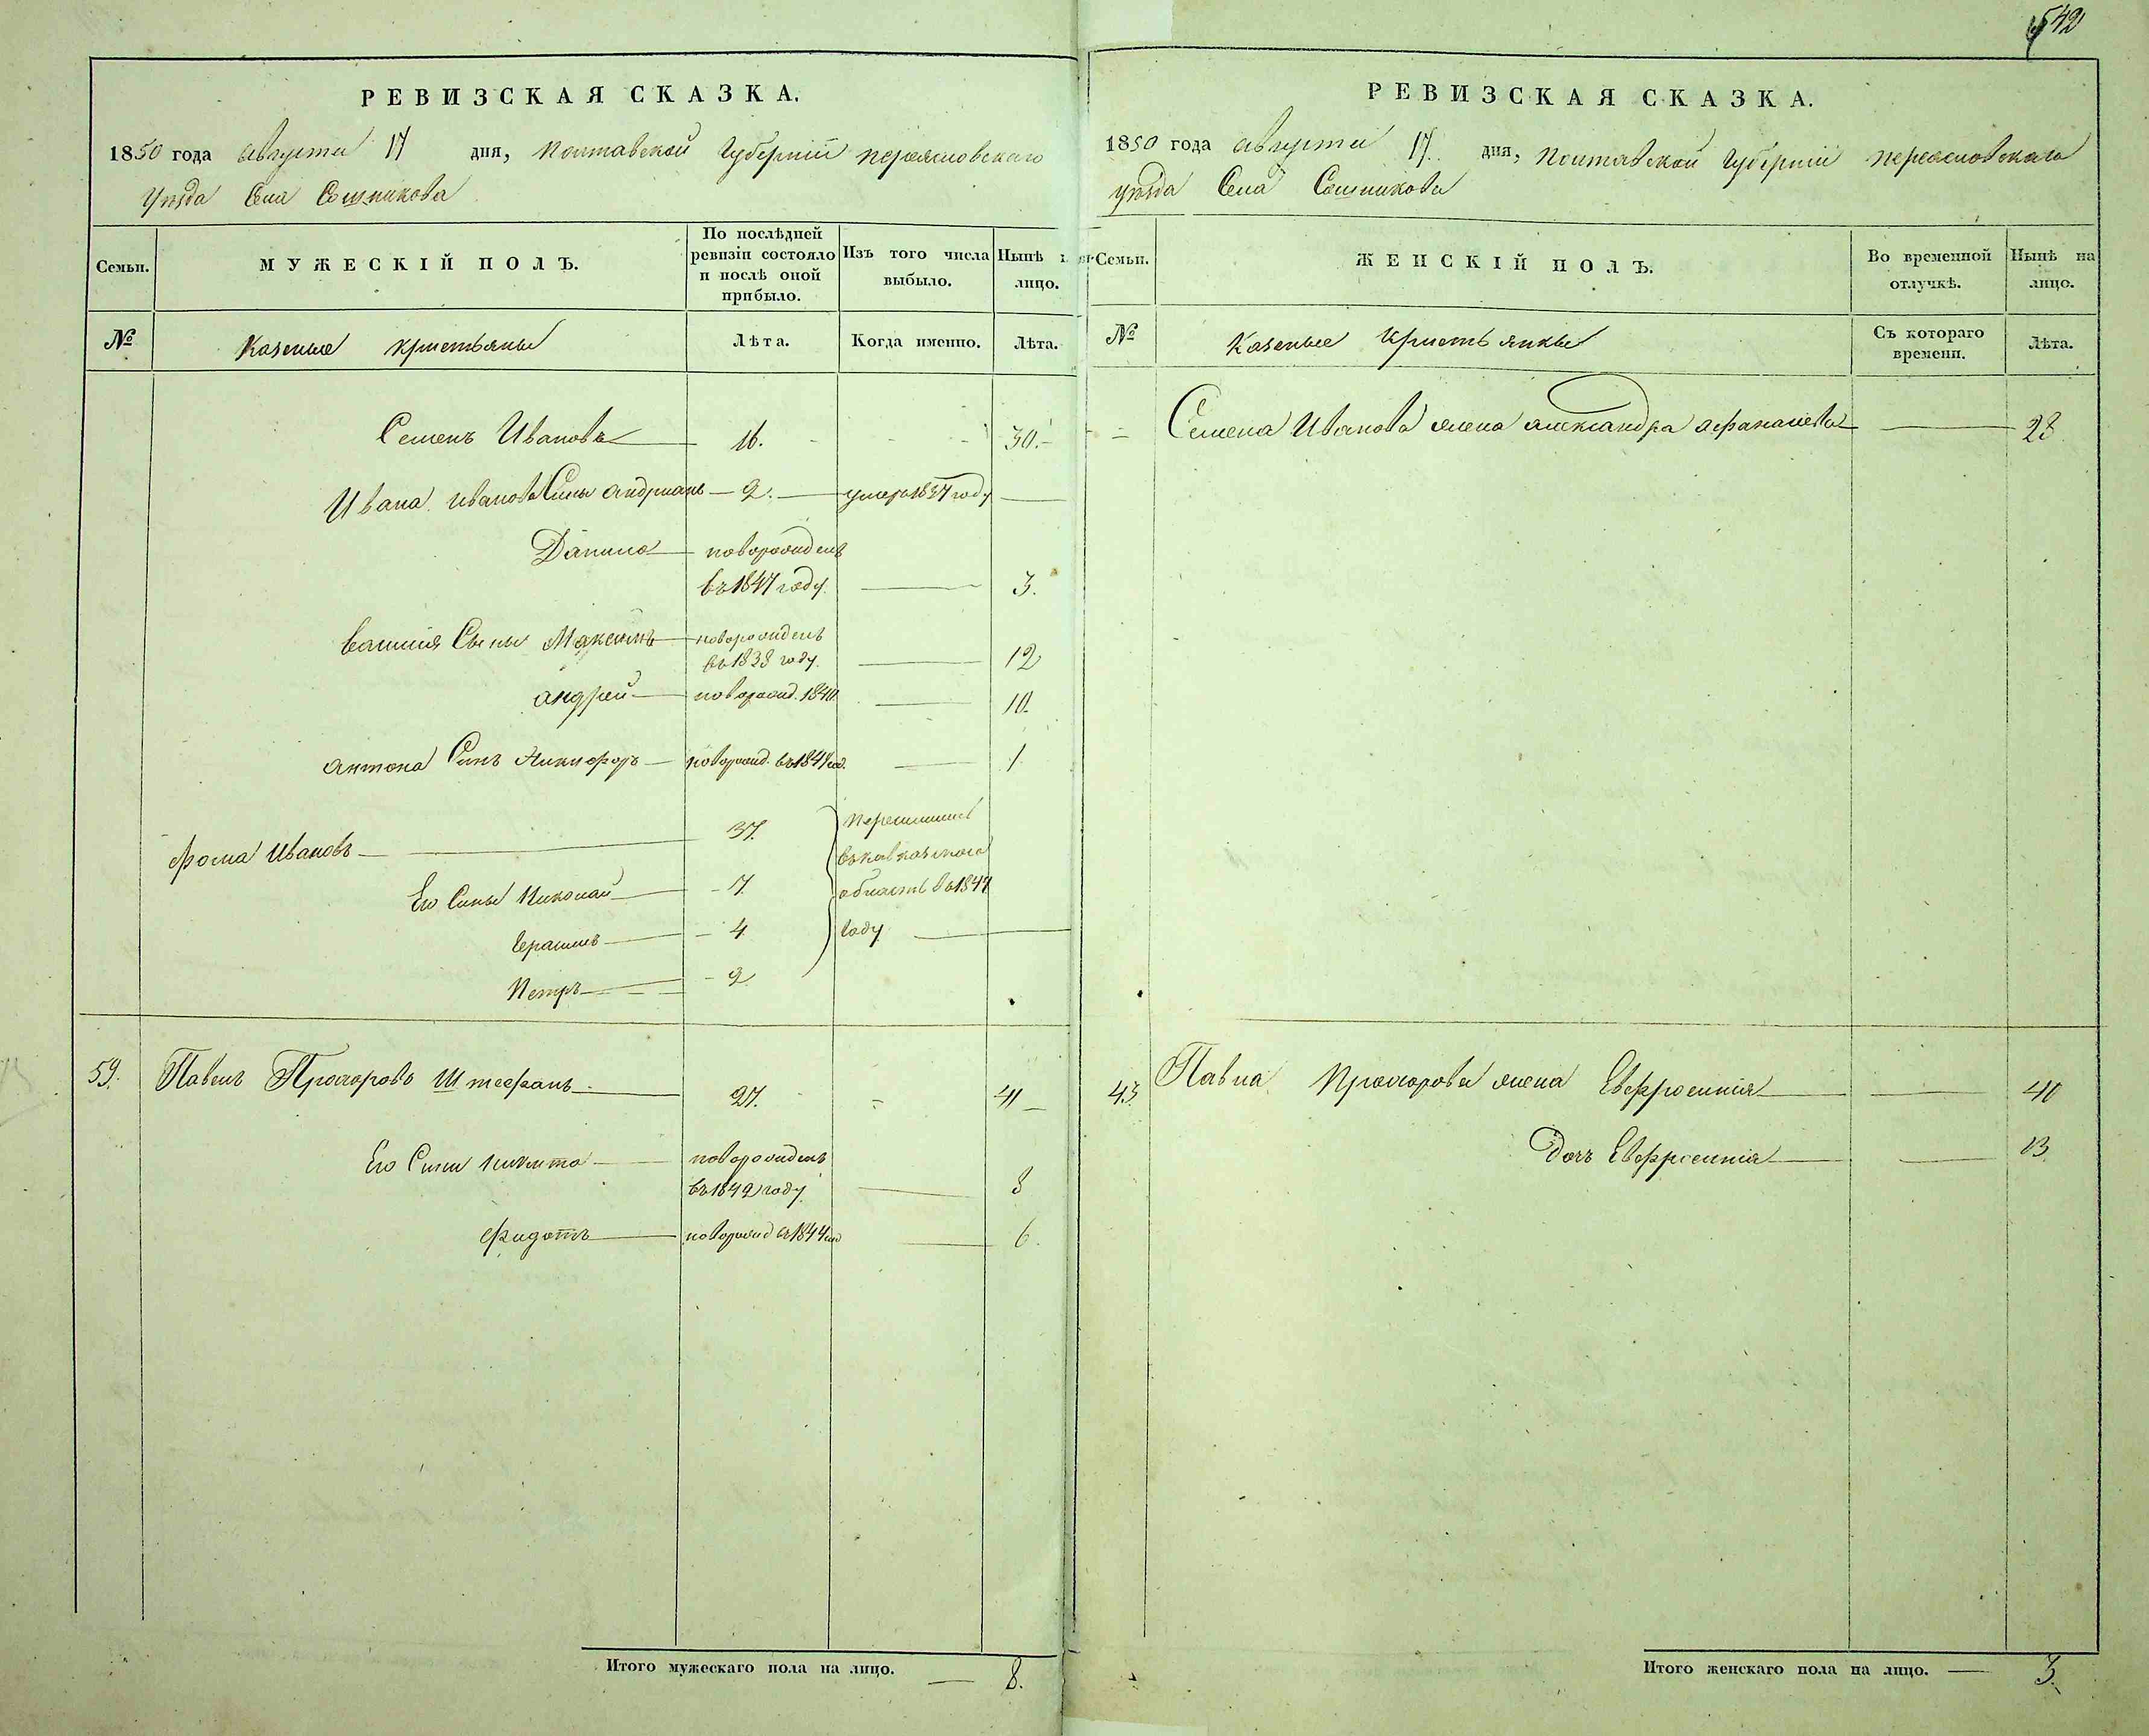 542
РЕВИЗСКАЯ СКАЗКА.
1850 года августа 17 дня, Полтавской Губернии переясловскаго
Уѣзда Села Сошникова
Семьи.
МУЖЕСКІЙ ПОЛЪ.
По послѣдней
ревизіи состояло
и послѣ оной
прибыло.
Изъ того числа
выбыло.
Нынѣ
лицо.
№
Казеные кристьяны
Лѣта.
Когда именно.
Лѣта.
Семенъ Ивановъ 16. 30.
Ивана Иванова Сины андриянъ 2. умеръ 1837 году
Данило новорожденъ
въ 1847 году. 3.
Василия Сыны Максимъ новорожденъ
въ 1838 году. 12
андрей новорожд. 1840 10.
антона Синъ Никифоръ новорожд. въ 1849 год. 1
Фома Ивановъ 37. переселился
Его Сины Николай 7 въ кавказскою
Герасимъ 4 область въ 1847
Петръ 2 году
59. Павелъ Прохоровъ Штефанъ 27. 41
Его Сины Никита новорожденъ
въ 1842 году 8
Фидотъ новорожд въ 1844 год 6.
Итого мужескаго пола на лицо. 8.
РЕВИЗСКАЯ СКАЗКА.
1850 года августа 17. дня, Полтавской Губернии переясловскаго
уѣзда Села Сошникова
Семьи.
ЖЕНСКІЙ ПОЛЪ.
Во временной
отлучкѣ.
Нынѣ на
лицо.
№
Казеные кристьянкы
Съ котораго
времени.
Лѣта.
Семена Иванова жена александра афанасиева 28
43. Павла Прохорова жена Евфросиния 40
Дочь Евфросиния 13
Итого женскаго пола на лицо. 3.